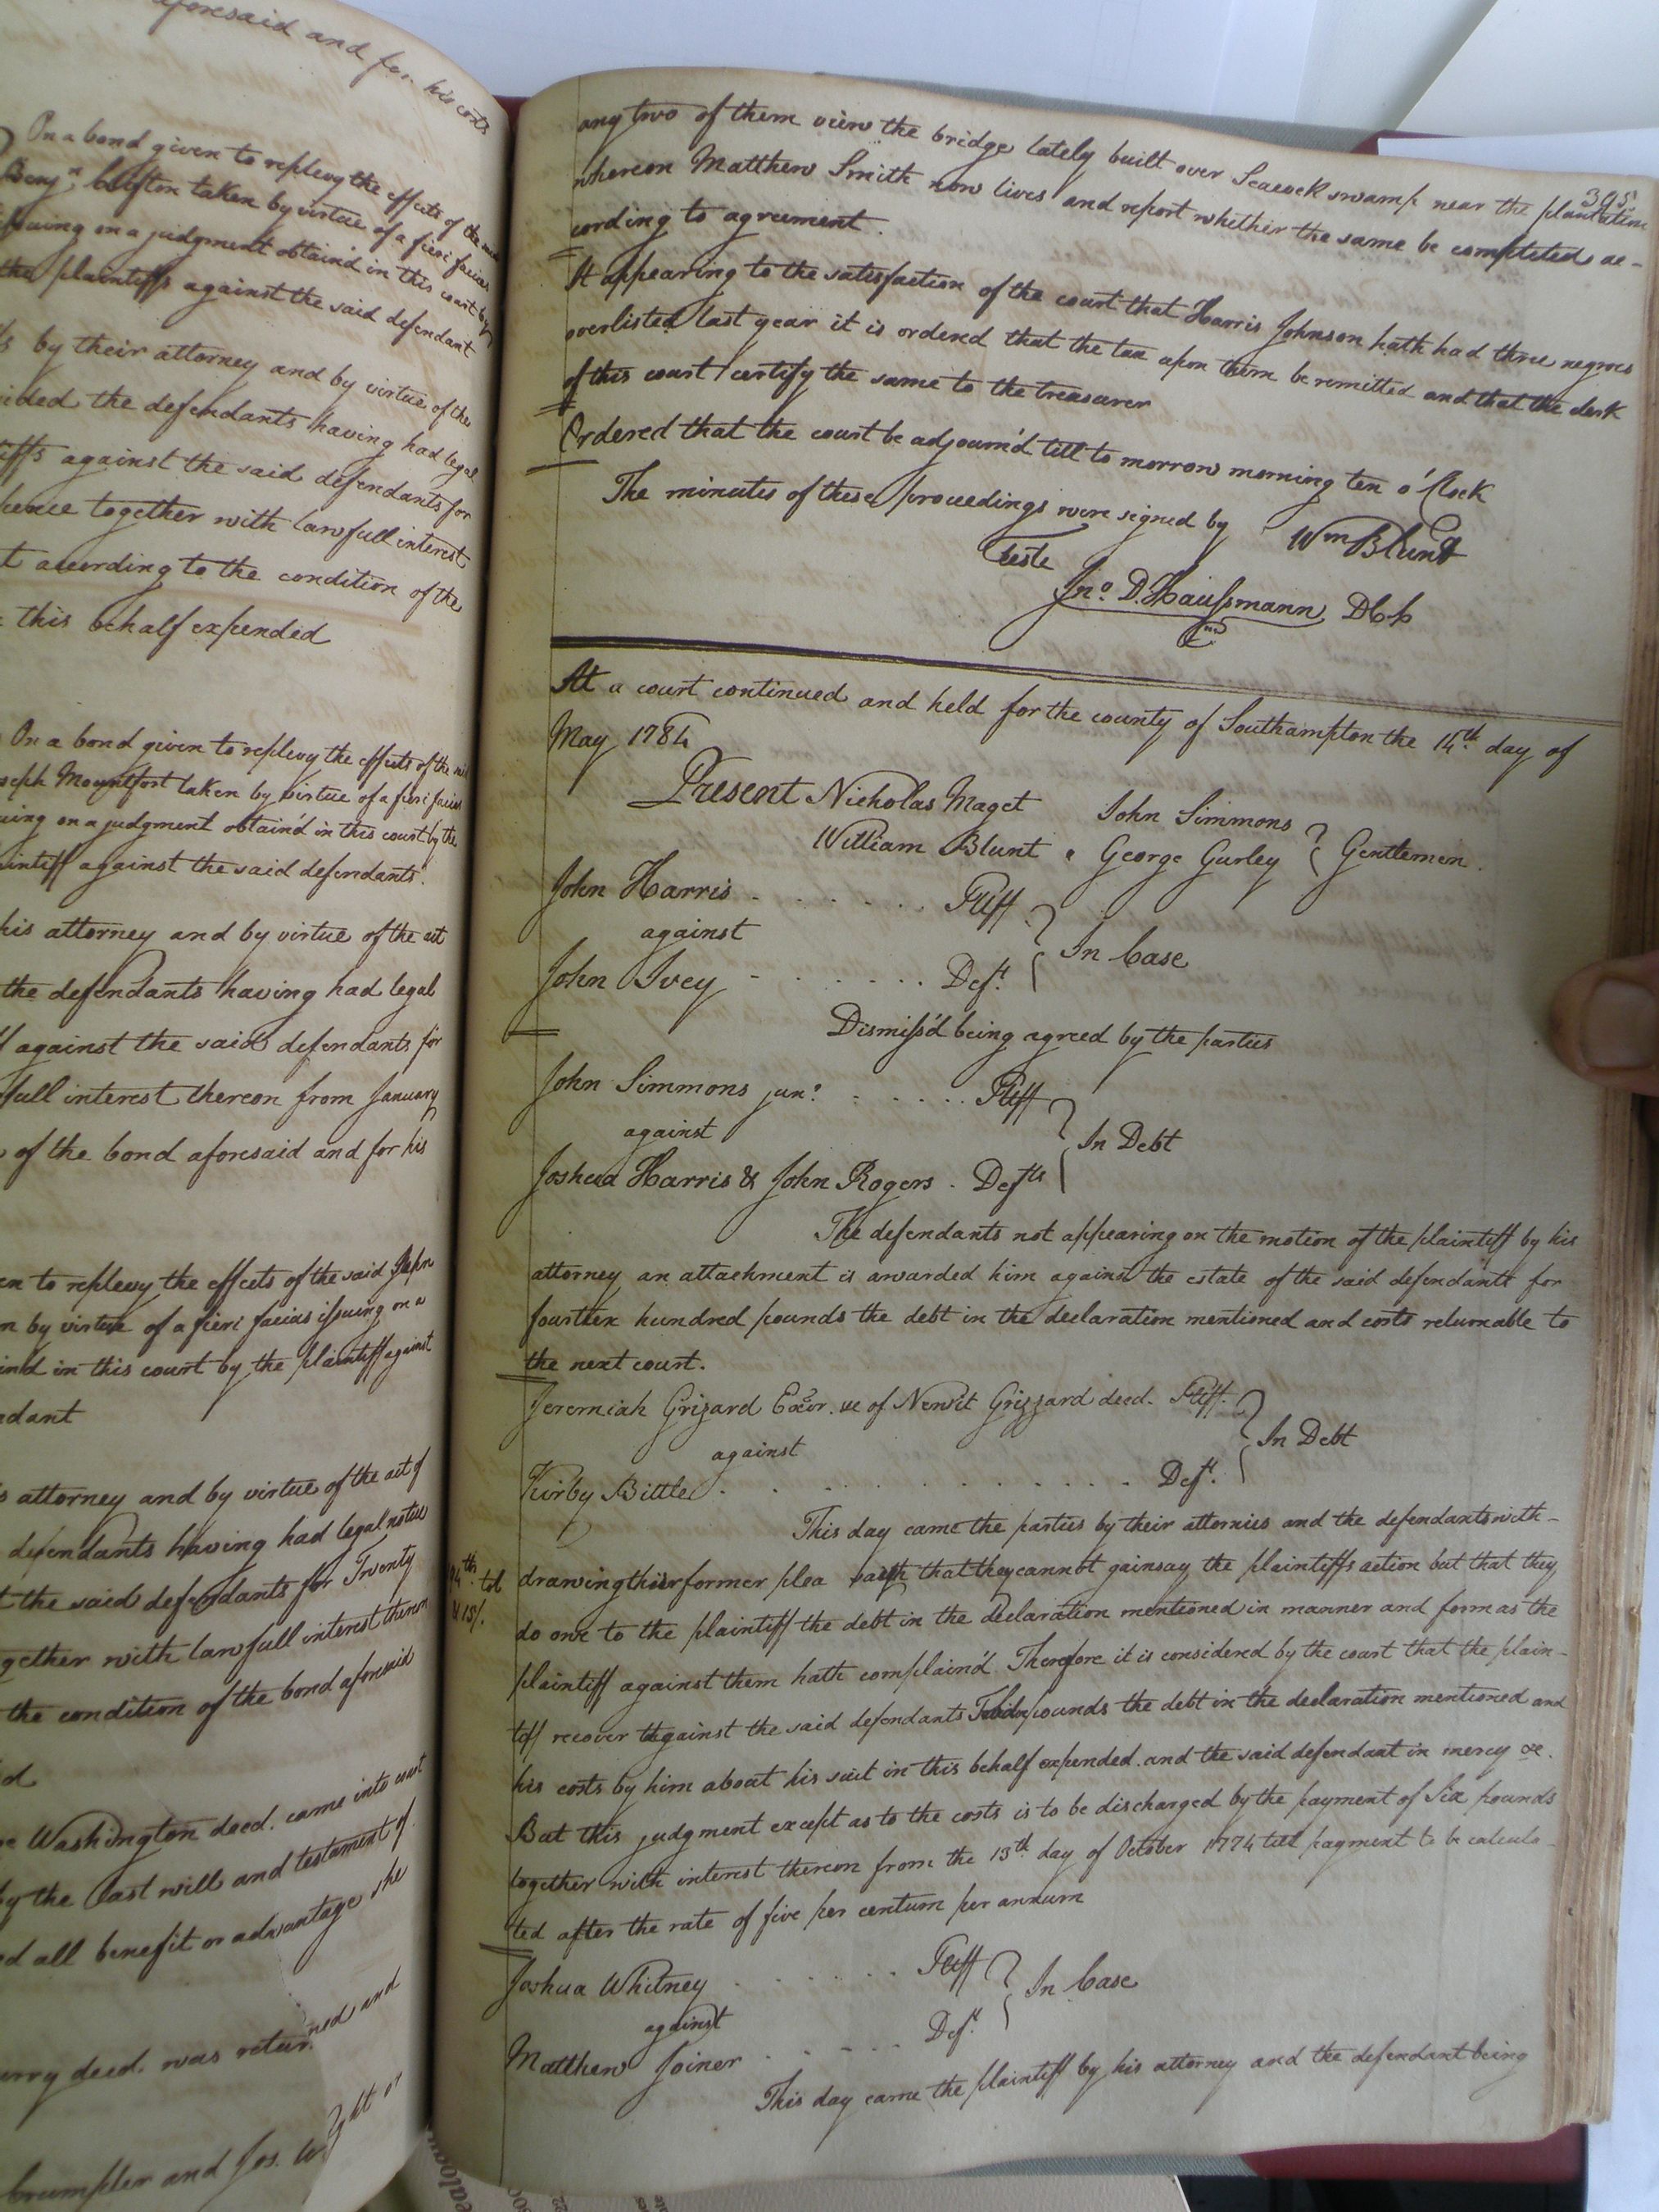 aforesaid and for his costs
On a bond given to replevy the effects of the
Benjn. Clifton taken by virtue of a fieri facias
issuing on a judgment obtain'd in this court by
the plaintiffs against the said defendant
by their attorney and by virtue of the
ided the defendants having had legal
iffs against the said defendants for
hence together with lawfull interest
t according to the condition of the
this behalf expended
On a bond given to replevy the effects of the
seph Mountfort taken by virtue of a fieri facias
uing on a judgment obtain'd in this court by the
aintiff against the said defendants.
his attorney and by virtue of the act
the defendants having had legal
against the said defendants for
full interest thereon from January
of the bond aforesaid and for his
en to replevy the effects of the said John
n by virtue of a fieri facias issuing on a
ind in this court by the plaintiff against
endant
s attorney and by virtue of the act of
defendants having had legal notice
t the said defendants for Twenty
gether with lawfull interest thereon
the condition of the bond aforesaid
d
Washington deed. came into court
by the last will and testament of
d all benefit or advantage she
urry deed. was returned and
ght or
Crumpler and Jos. W
395
any two of them view the bridge lately built over Seacock swamp near the plantation
whereon Matthew Smith now lives and report whether the same be completed ac-
cording to agreement.
It appearing to the satisfaction of the court that Harris Johnson hath had three negroes
overlisted last year it is ordered that the tax upon them be remitted and that the clerk
of this court certify the same to the treasurer
Ordered that the court be adjourn'd till to morrow morning ten o'Clock
The minutes of these proceedings were signed by Wm Blunt
Teste
Jno. D. Haussmann DCk
At a court continued and held for the county of Southampton the 14th. day of
May 1784
Present Nicholas Maget John Simmons
William Blunt & George Gurley Gentlemen.
John Harris Pltff
against In Case
John Ivey Deft.
Dismiss'd being agreed by the parties
John Simmons junr. Pltff
against In Debt
Joshua Harris & John Rogers. Defts
The defendants not appearing on the motion of the plaintiff by his
attorney an attachment is awarded him against the estate of the said defendants for
fourteen hundred pounds the debt in the declaration mentioned and costs returnable to
the next court.
Jeremiah Grizard Exor. &c of Newit Grizzard deed. Pltff.
against In Debt
Kirby Bittle Deft.
This day came the parties by their attornies and the defendants with-
drawing their former plea saith that they cannot gainsay the plaintiffs action but that they
do owe to the plaintiff the debt in the declaration mentioned in manner and form as the
plaintiff against them hath complain'd. Therefore it is considered by the court that the plain-
tiff recover against the said defendants pounds the debt in the declaration mentioned and
his costs by him about his suit in this behalf expended. and the said defendant in mercy &c.
But this judgment except as to the costs is to be discharged by the payment of Six pounds
together with interest thereon from the 13th day of October 1774 till payment to be calcula-
ted after the rate of five per centum per annum
Joshua Whitney Pltff
against In Case
Matthew Joiner Deft.
This day came the plaintiff by his attorney and the defendant being